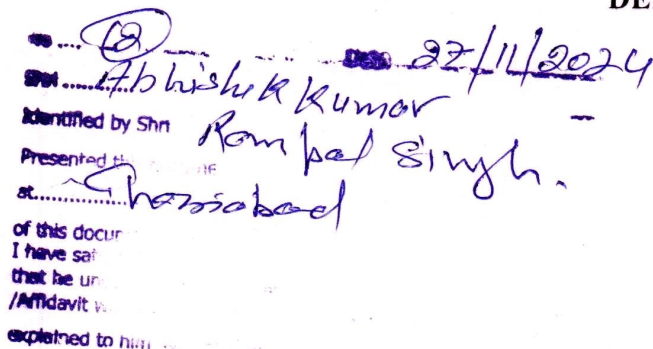 DE
No .... 12 Date 27/11/2024
Shri ........ Abhishek Kumar
Identified by Shri Rampal Singh.
Presented th
at .............. Ghaziabad
of this docu
I have sa
that he un
/Affidavit w
explained to him